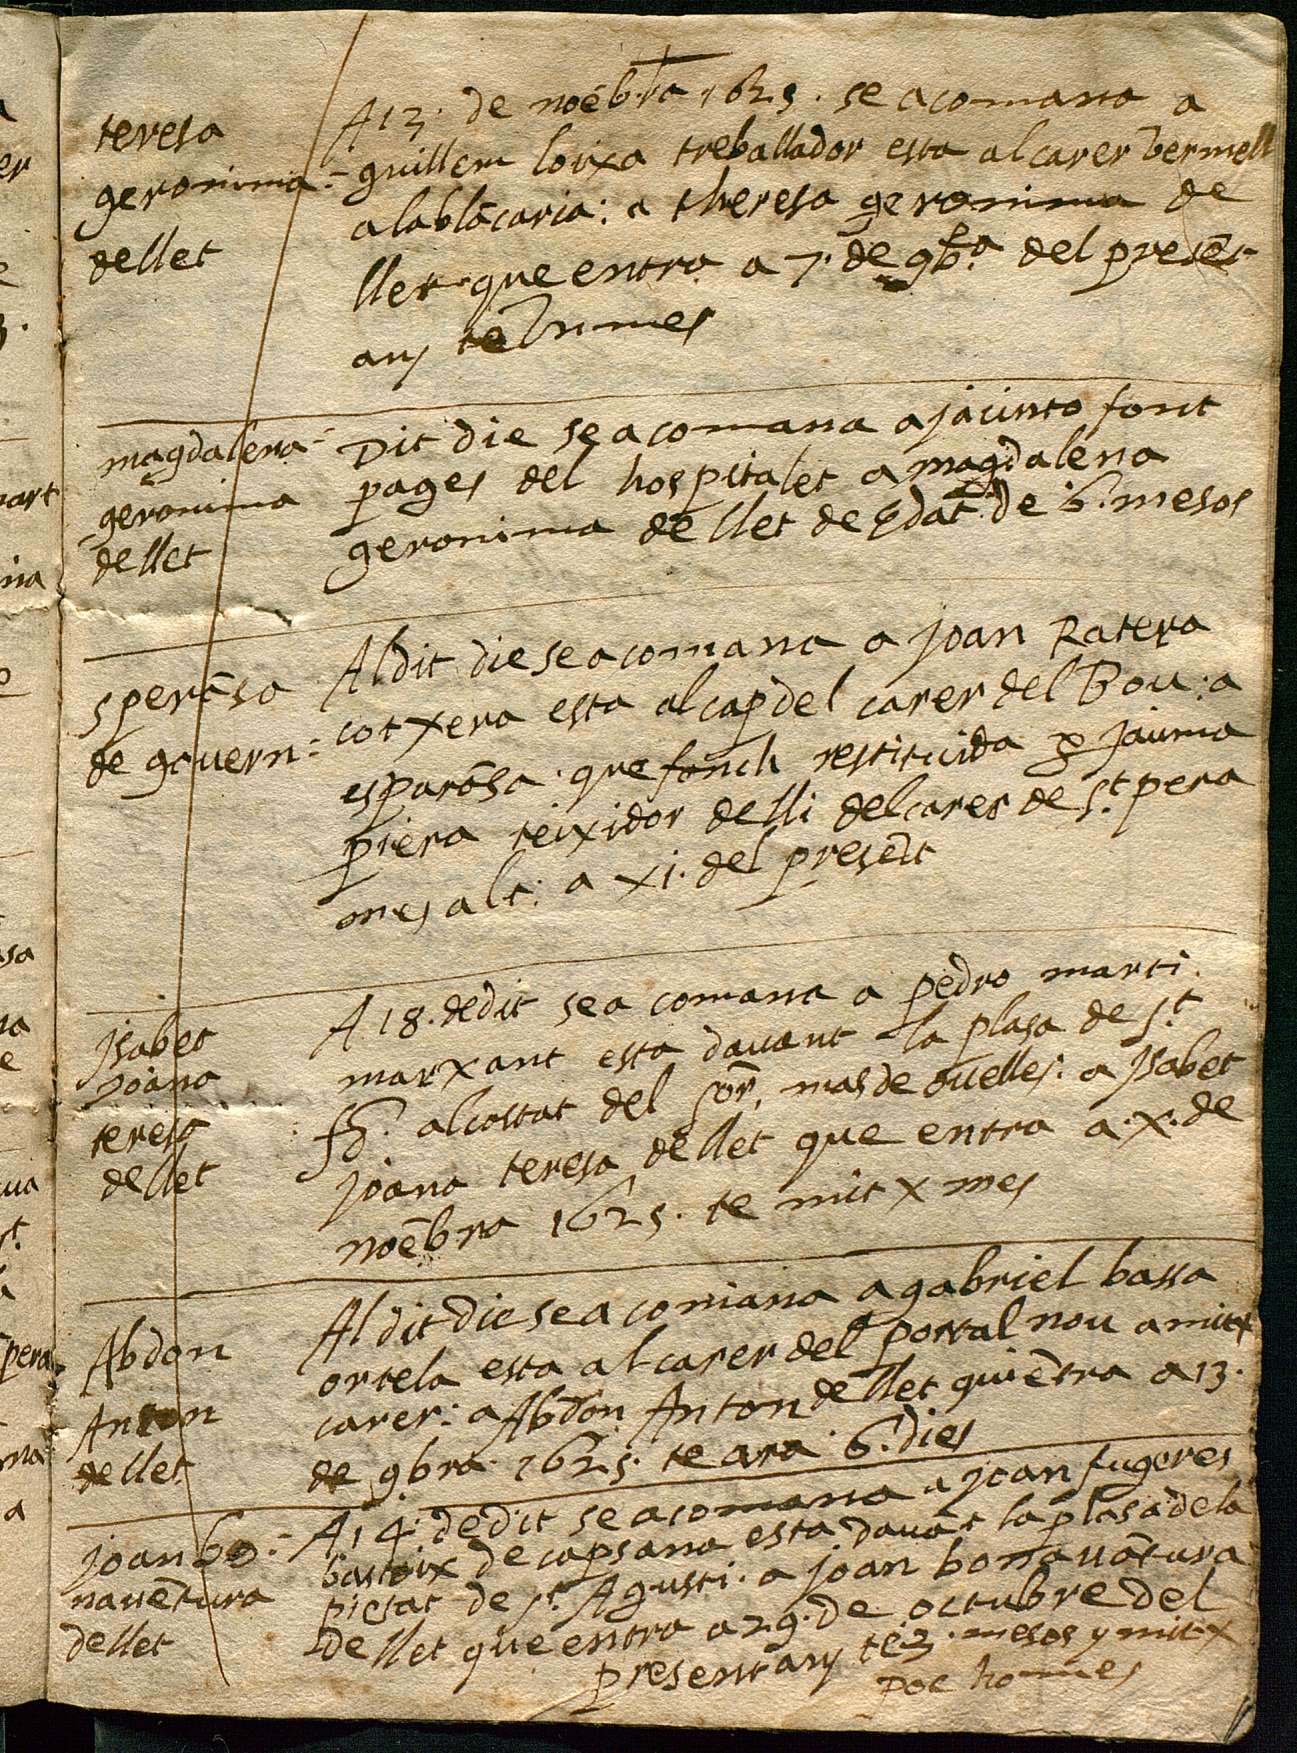 teresa
geronima
de llet
A 13. de noēbra 1625. se acomana a
guillem loixa treballador esta al carer vermell
a la blācaria: a theresa geronima de
llet que entra a 7. de 9bra del presēt
any te un mes
magdalena
geronima
de llet
Dit die se acomana a jacinto font
pages del hospitalet a magdalena
geronima de llet de Edat de 6. mesos
sperāsa
de govern
Al dit die se acomana a joan Ratera
cotxera esta al cap del carer del Bou: a
esparāsa que fonch restituida p jauma
piera teixidor de lli del carer de st. pera
mes alt: a xi. del presēt
Isabet
joana
teresa
de llet
A 18. de dit se a comana a pedro marti
marxant esta davant la plasa de st.
al costat del sor. mas de ovelles: a Isabet
joana teresa de llet que entra a. x. de
noēbra 1625. te mitx mes
Abdon
Anton
de llet
Al dit die se a comana a gabriel bassa
ortela esta al carer del portal nou a mitx
carer: a Abdon Anton de llet qui ētra a 13.
de 9bra 1625. te ara 6. dies
joan bo-
navētura
de llet
A 14. de dit se acomana a joan fugeres
bastaix de capsana esta davāt la plasa de la
pietat de st. Agusti. a joan bonavātura
de llet que entra a 29. de octubre del
present any te 3. mesos y mitx
poc ho mes